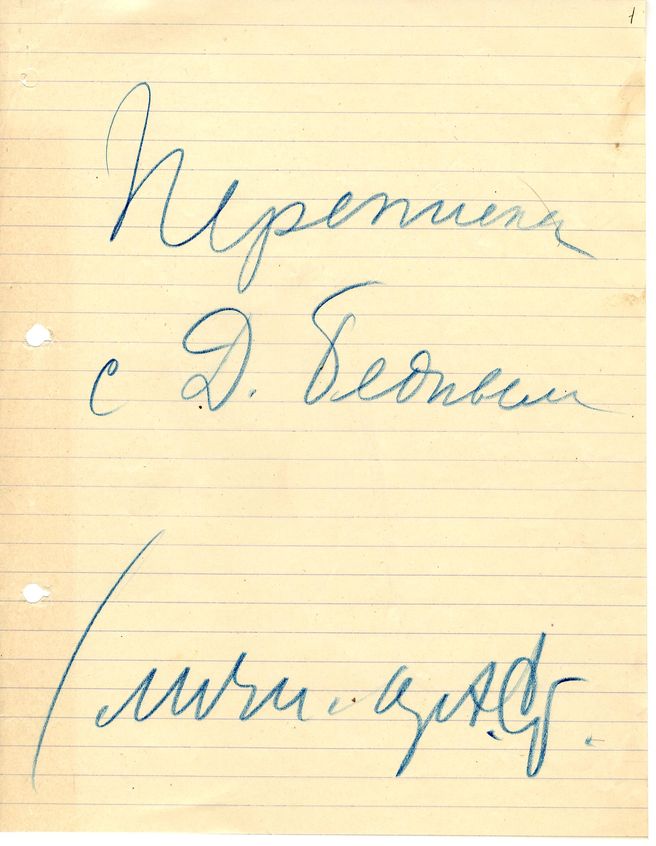 1
Переписка
с Д. Бедным
(мой. арх.